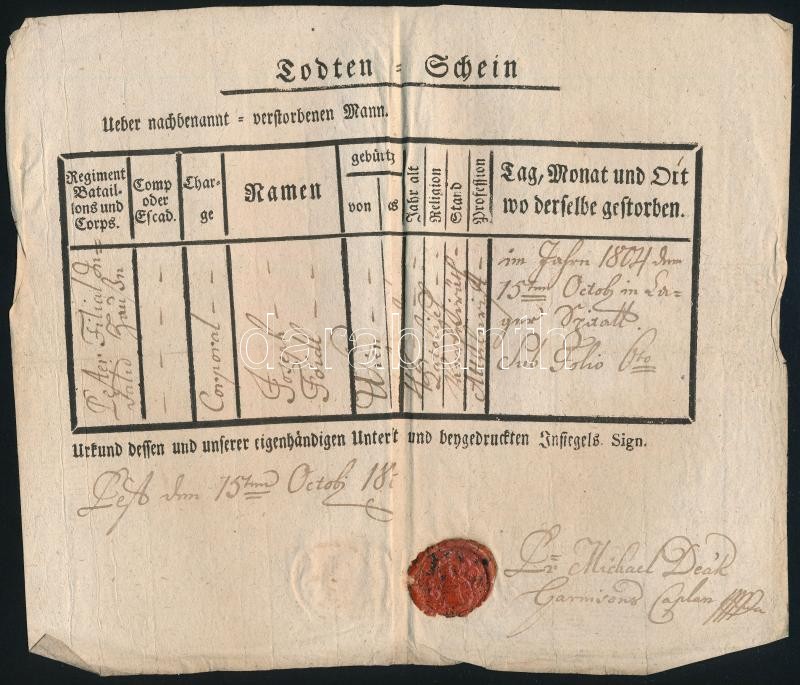 Todten = Schein
Ueber nachbenannt = verstorbenen Mann.
Regiment Batail- lons und Corps.
Comp oder Escad.
Char- ge
Namen
gebürtz
von
es
Jahr alt
Religion
Stand
Profession
Tag, Monat und Ort
wo derselbe gestorben.
Pester Filial
Corporal
Joseph
im Jahre 1804 dem
15ten Octob in La-
ger Spitall.
Sub Folio 6to
darabanth
Urkund dessen und unserer eigenhändigen Untert und beygedruckten Insiegels. Sign.
Pest dem 15ten Octob 18
Pr Michael Deák
Garnisons Caplan